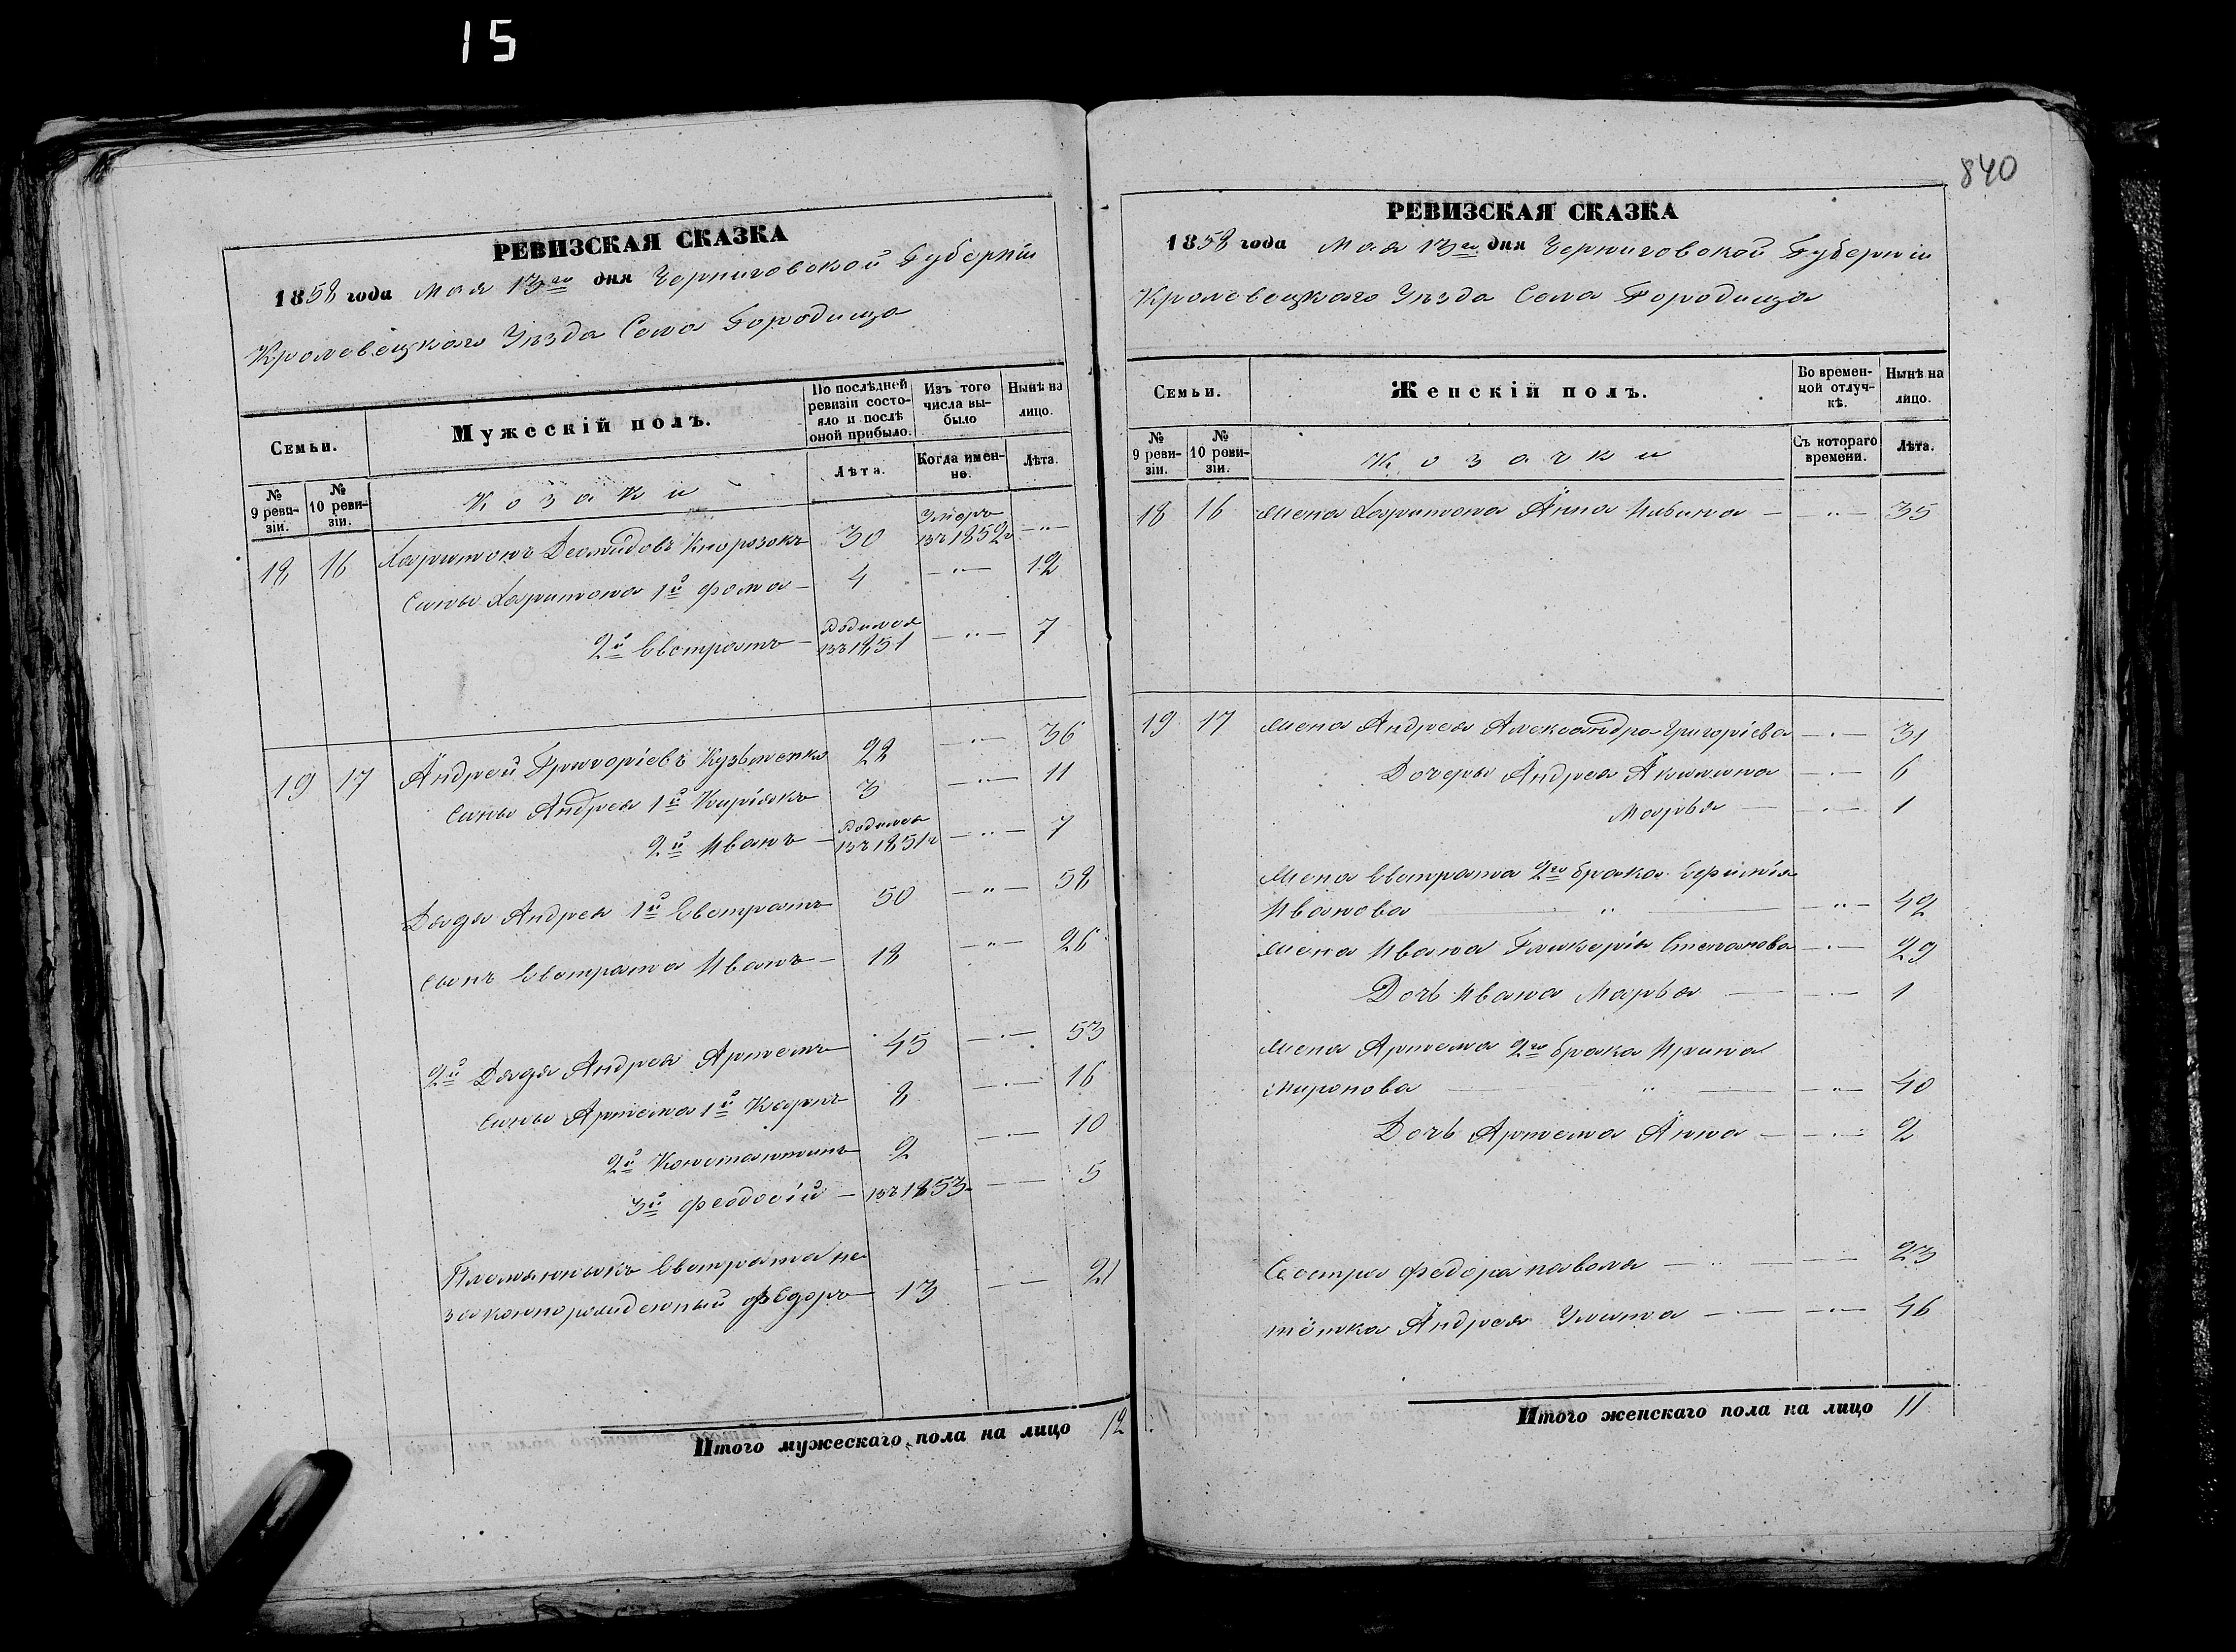 15
840
РЕВИЗСКАЯ СКАЗКА
1858 года Мая 13го дня Черниговской Губерніи
Кролевецкаго Уѣзда Села Городища
Семьи.
Мужескій полъ.
По послѣдней ревизіи состояло и послѣ оной прибыло.
Изъ того числа выбыло
Нынѣ на лицо.
№ 9 ревизіи.
№ 10 ревизіи.
Козаки
Лѣта.
Когда именно.
Лѣта.
18 16 Харитонъ Демидовъ 30 Умеръ въ 1852г —"—
Сыны Харитона 1й Фома — 4 —"— 12
2й Евстратъ — Родился въ 1851 —"— 7
19 17 Андрей Григоріевъ Кузьменко 28 —"— 36
Сыны Андрея 1й Киріякъ 3 —"— 11
2й Иванъ — Родился въ 1851г —"— 7
Дядя Андрея 1й Евстратъ 50 —"— 58
Сынъ Евстрата Иванъ — 18 —"— 26
2й Дядя Андрея Артемъ 45 —"— 53
Сыны Артема 1й Карпъ 8 —"— 16
2й Константинъ 2 —"— 10
3й Феодосій — въ 1853 — — 5
Племянникъ Евстрата не
законнорожденный Федоръ 13 — — 21
Итого мужескаго пола на лицо 12
РЕВИЗСКАЯ СКАЗКА
1858 года Мая 13го дня Черниговской Губерніи
Кролевецкаго Уѣзда Села Городища
Семьи.
Женскій полъ.
Во временной отлучкѣ.
Нынѣ на лицо.
№ 9 ревизіи.
№ 10 ревизіи.
Козачки
Съ котораго времени.
Лѣта.
18 16 Жена Харитона Анна Ильина — —"— 35
19 17 Жена Андрея Александра Григоріева —"— 31
Дочери Андрея Акилина —"— 6
Марья — —"— 1
Жена Евстрата 2го брака Ефимія
Иванова — " — —"— 42
Жена Ивана Гликерія Степанова —"— 29
Дочь Ивана Марья — —"— 1
Жена Артема 2го брака Ирина
Миронова — " — —"— 40
Дочь Артема Анна — —"— 2
Сестра Федора — " — — 23
тётка Андрея Улита —"— —"— 46
Итого женскаго пола на лицо 11